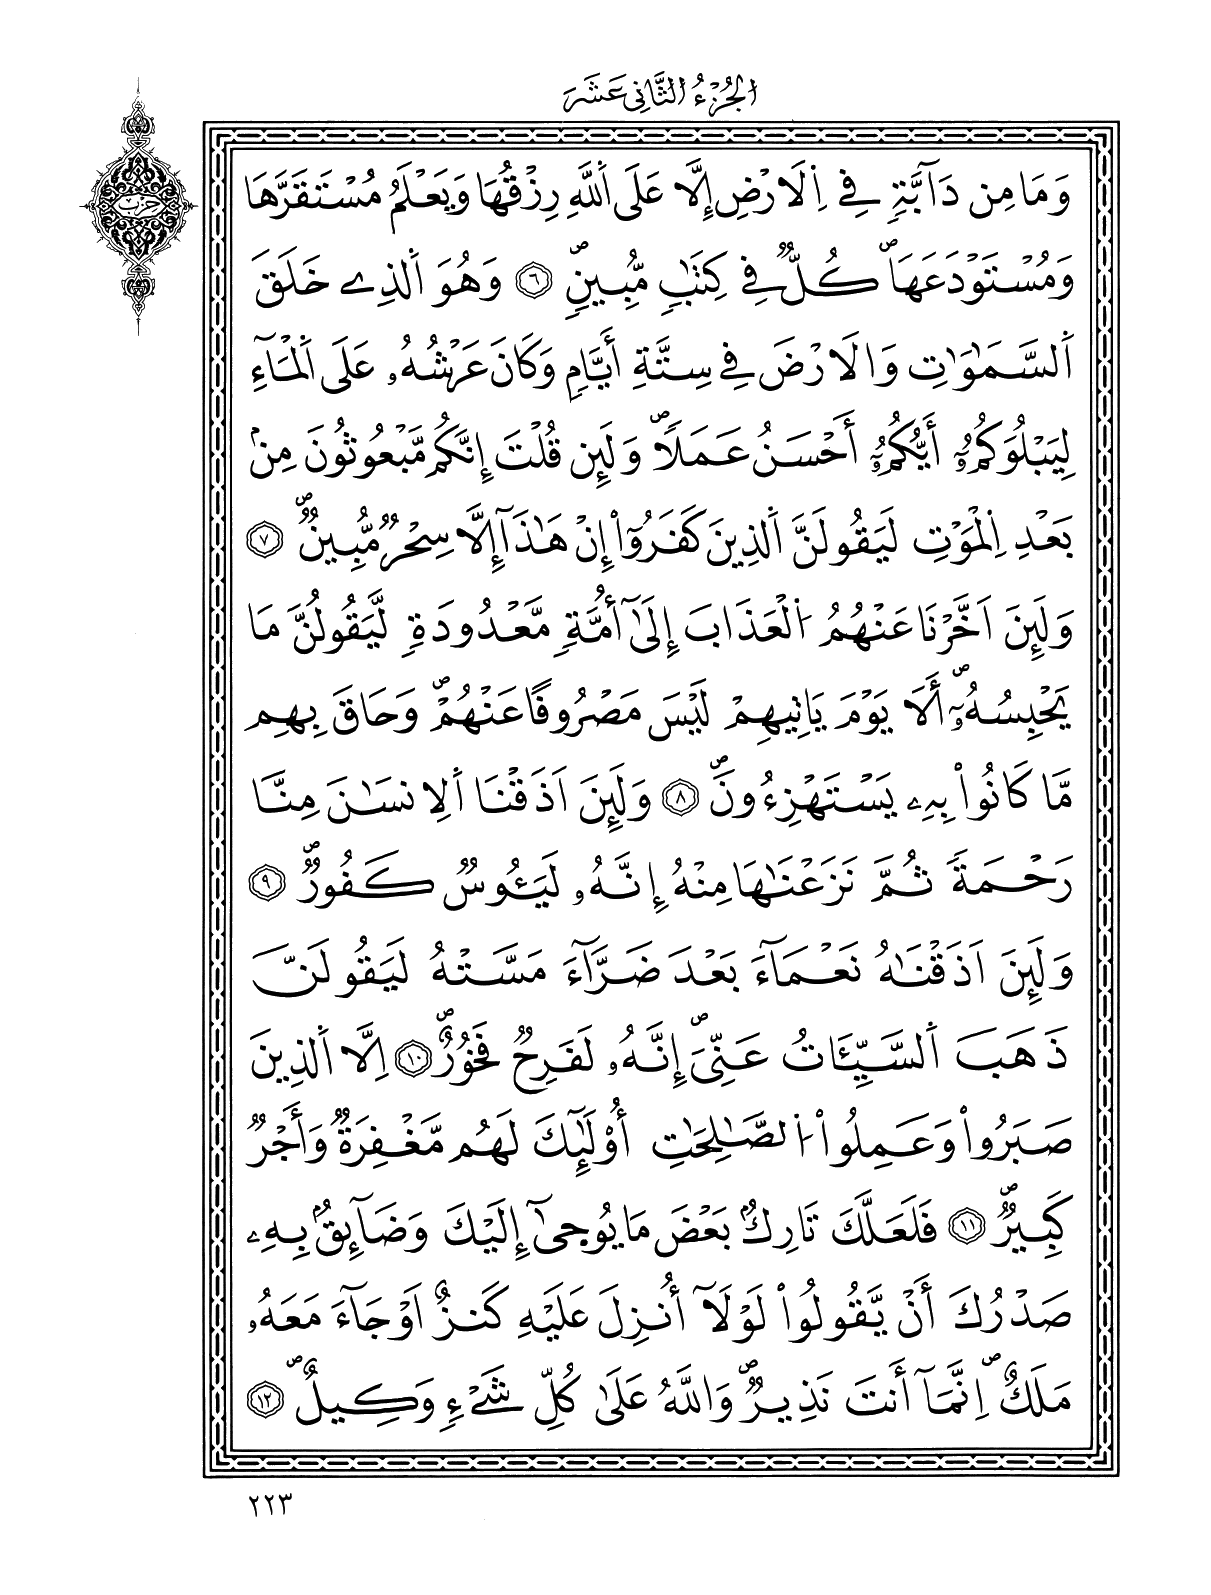 الجُزْءُ الثَّانِي عَشَرَ
حزب
وَمَا مِن دَآبَّةٍ فِے اِ۬لَارْضِ إِلَّا عَلَى اَ۬للَّهِ رِزْقُهَا وَيَعْلَمُ مُسْتَقَرَّهَا
وَمُسْتَوْدَعَهَاۖ كُلّٞ فِے كِتَٰبٖ مُّبِينٖۖ ٦ وَهُوَ اَ۬لذِے خَلَقَ
اَ۬لسَّمَٰوَٰتِ وَالَارْضَ فِے سِتَّةِ أَيَّامٖ وَكَانَ عَرْشُهُۥ عَلَى اَ۬لْمَآءِ
لِيَبْلُوَكُمُۥٓ أَيُّكُمُۥٓ أَحْسَنُ عَمَلاٗۖ وَلَئِن قُلْتَ إِنَّكُم مَّبْعُوثُونَ مِنۢ
بَعْدِ اِ۬لْمَوْتِ لَيَقُولَنَّ اَ۬لذِينَ كَفَرُوٓاْ إِنْ هَٰذَآ إِلَّا سِحْرٞ مُّبِينٞۖ ٧
وَلَئِنَ اَخَّرْنَا عَنْهُمُ اُ۬لْعَذَابَ إِلَىٰٓ أُمَّةٖ مَّعْدُودَةٖ لَّيَقُولُنَّ مَا
يَحْبِسُهُۥٓۖ أَلَا يَوْمَ يَاتِيهِمْ لَيْسَ مَصْرُوفًا عَنْهُمْۖ وَحَاقَ بِهِم
مَّا كَانُواْ بِهِۦ يَسْتَهْزِءُونَۖ ٨ وَلَئِنَ اَذَقْنَا اَ۬لِانسَٰنَ مِنَّا
رَحْمَةٗ ثُمَّ نَزَعْنَٰهَا مِنْهُ إِنَّهُۥ لَيَـُٔوسٞ كَفُورٞۖ ٩
وَلَئِنَ اَذَقْنَٰهُ نَعْمَآءَ بَعْدَ ضَرَّآءَ مَسَّتْهُ لَيَقُولَنَّ
ذَهَبَ اَ۬لسَّيِّـَٔاتُ عَنِّيَۖ إِنَّهُۥ لَفَرِحٞ فَخُورٌۖ ١٠ اِلَّا اَ۬لذِينَ
صَبَرُواْ وَعَمِلُواْ اُ۬لصَّٰلِحَٰتِ أُوْلَٰٓئِكَ لَهُم مَّغْفِرَةٞ وَأَجْرٞ
كَبِيرٞۖ ١١ فَلَعَلَّكَ تَارِكُۢ بَعْضَ مَا يُوحَىٰٓ إِلَيْكَ وَضَآئِقُۢ بِهِۦ
صَدْرُكَ أَنْ يَّقُولُواْ لَوْلَآ أُنزِلَ عَلَيْهِ كَنزٌ اَوْ جَآءَ مَعَهُۥ
مَلَكٌۖ اِنَّمَآ أَنتَ نَذِيرٞۖ وَاللَّهُ عَلَىٰ كُلِّ شَےْءٖ وَكِيلٌۖ ١٢
٢٢٣